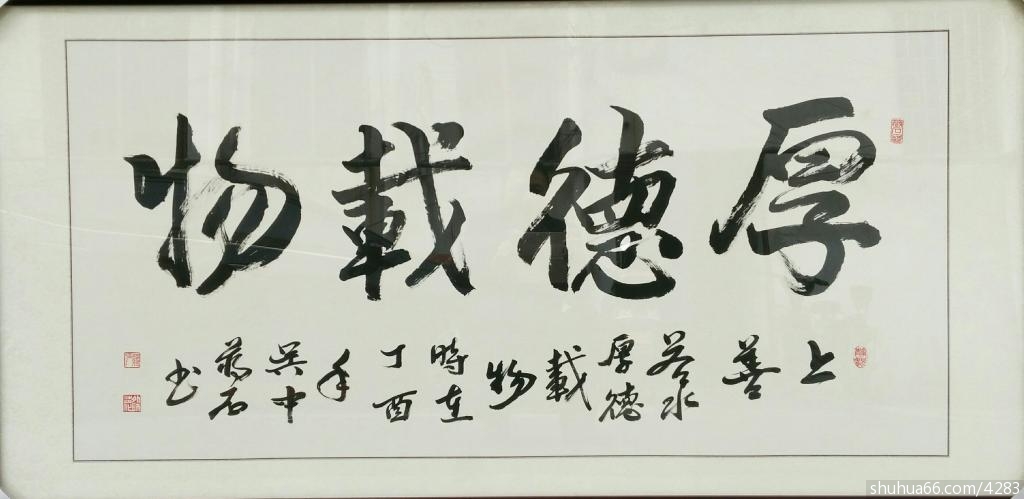 厚德載物
上善若水厚德載物時在丁酉年吴中蒋石书
shuhua66.com/4283